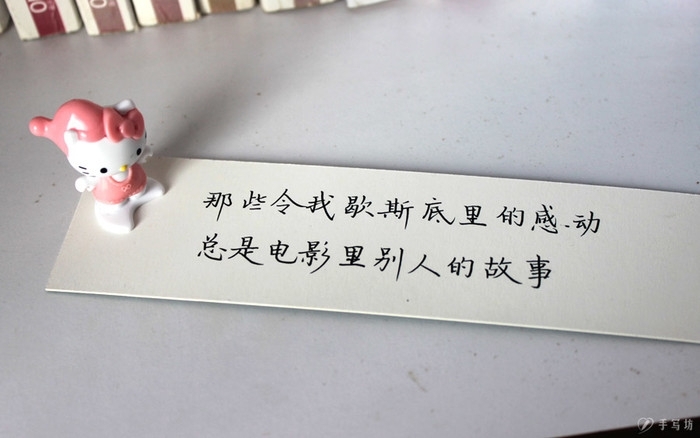 那些令我歇斯底里的感动
总是电影里别人的故事
手写坊